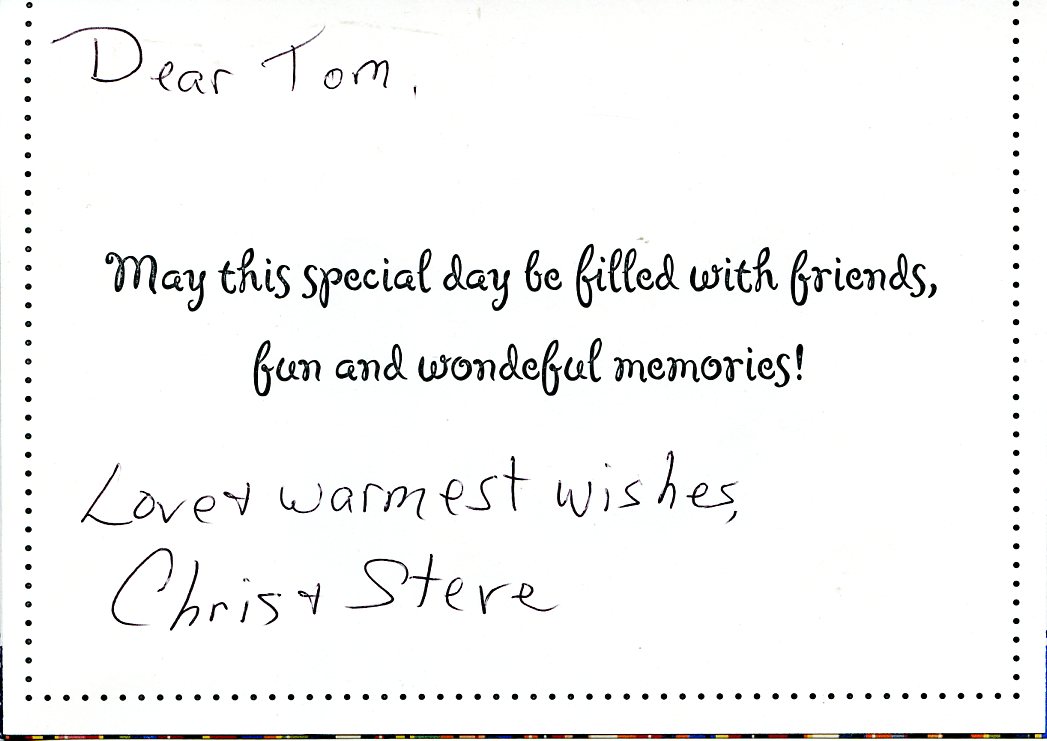 Dear Tom,
May this special day be filled with friends,
fun and wondeful memories!
Love & warmest wishes,
Chris & Steve